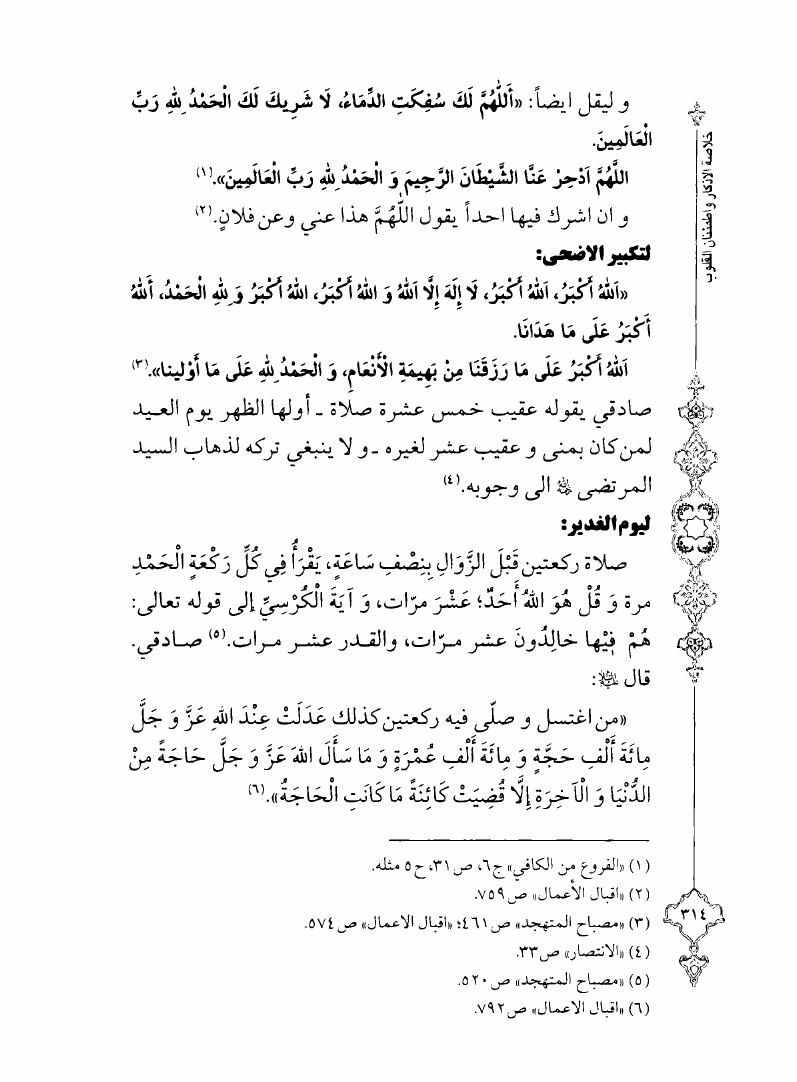 و ليقل ايضاً: «أَللّٰهُمَّ لَكَ سُفِكَتِ الدِّمَاءُ، لَا شَرِيكَ لَكَ الْحَمْدُ لِلهِ رَبِّ
الْعَالَمِينَ.
اللّٰهُمَّ اَدْحِرْ عَنَّا الشَّيْطَانَ الرَّجِيمَ وَ الْحَمْدُ لِلهِ رَبِّ الْعَالَمِينَ».(١)
و ان اشرك فيها احداً يقول اللّٰهُمَّ هذا عني وعن فلانٍ.(٢)
لتكبير الاضحى:
«اَللهُ أَكْبَرُ، اَللهُ أَكْبَرُ، لَا إِلَهَ إِلَّا اَللهُ وَ اللهُ أَكْبَرُ، اللهُ أَكْبَرُ وَ لِلهِ الْحَمْدُ، أَللهُ
أَكْبَرُ عَلَى مَا هَدَانَا.
اَللهُ أَكْبَرُ عَلَى مَا رَزَقَنَا مِنْ بَهِيمَةِ الْأَنْعَامِ، وَ الْحَمْدُ لِلهِ عَلَى مَا أَوْلينا».(٣)
صادقي يقوله عقيب خمس عشرة صلاة ـ أولها الظهر يوم العيد
لمن كان بمنى و عقيب عشر لغيره ـ و لا ينبغي تركه لذهاب السيد
المرتضى الى وجوبه.(٤)
ليوم الغدير:
صلاة ركعتين قَبْلَ الزَّوَالِ بِنِصْفِ سَاعَةٍ، يَقْرَأُ فِي كُلِّ رَكْعَةٍ الْحَمْدِ
مرة وَ قُلْ هُوَ اللهُ أَحَدٌ؛ عَشْرَ مرّات، وَ آيَةَ الْكُرْسِيِّ إلى قوله تعالى:
هُمْ فِيْها خالِدُونَ عشر مرّات، والقدر عشر مرات.(٥) صادقي.
قال ﷺ:
«من اغتسل و صلّى فيه ركعتين كذلك عَدَلَتْ عِنْدَ اللهِ عَزَّ وَ جَلَّ
مِائَةَ أَلْفِ حَجَّةٍ وَ مِائَةَ أَلْفِ عُمْرَةٍ وَ مَا سَأَلَ اللهَ عَزَّ وَ جَلَّ حَاجَةً مِنْ
الدُّنْيَا وَ الْآخِرَةِ إِلَّا قُضِيَتْ كَائِنَةً مَا كَانَتِ الْحَاجَةُ».(٦)
(١) «الفروع من الكافي» ج٦، ص٣١، ح٥ مثله.
(٢) «اقبال الأعمال» ص٧٥٩.
(٣) «مصباح المتهجد» ص٤٦١؛ «اقبال الاعمال» ص٥٧٤.
(٤) «الانتصار» ص٣٣.
(٥) «مصباح المتهجد» ص٥٢٠.
(٦) «اقبال الاعمال» ص٧٩٢.
خلاصة الاذكار واطمئنان القلوب
٣١٤